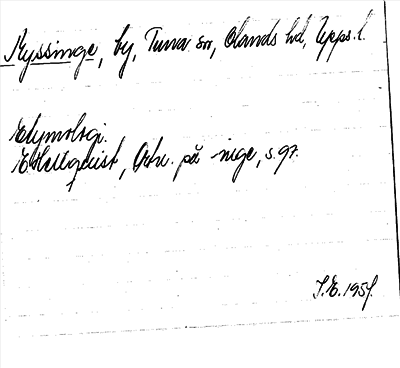 Myssinge, by, Tuna sn, Olands hd, Upps. l.
Etymologi.
E Hellquist, Ortn. på -inge, s. 97.
I.E. 1954.